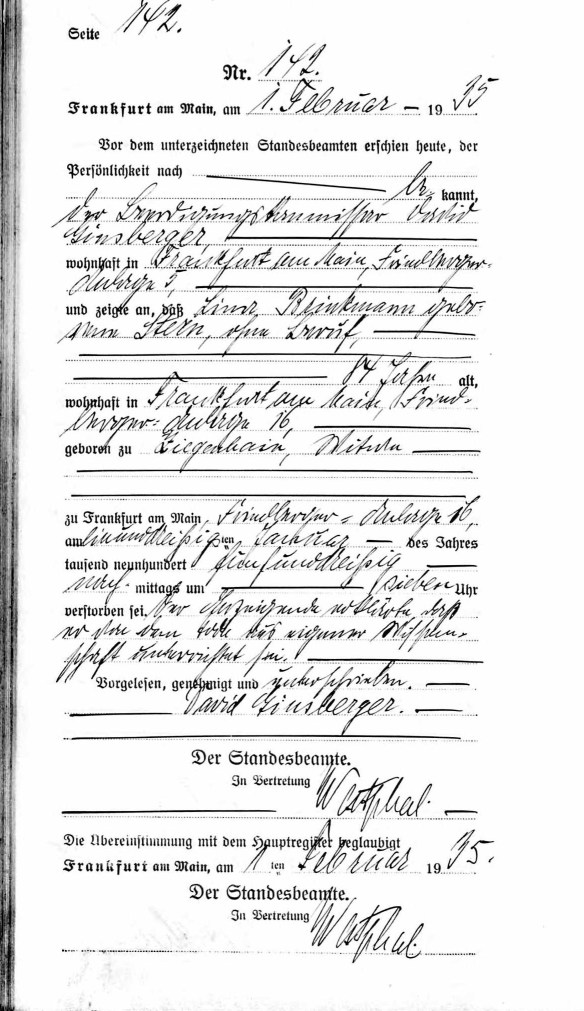 Seite 142.
Nr. 142.
Frankfurt am Main, am 1. Februar 1935
Vor dem unterzeichneten Standesbeamten erschien heute, der
Persönlichkeit nach
be kannt,
der Beerdigungskommissar David
Ginsberger,
wohnhaft in Frankfurt am Main, Friedberger-
Anlage 5,
und zeigte an, daß Lina Brinkmann gebo-
rene Stern, ohne Beruf,
84 Jahre alt,
wohnhaft in Frankfurt am Main, Fried-
berger-Anlage 16,
geboren zu Ziegenhain, Witwe
zu Frankfurt am Main, Friedberger-Anlage 16,
am einunddreißigsten Januar des Jahres
tausend neunhundert fünfunddreißig
nach mittags um sieben Uhr
verstorben sei. Der Anzeigende erklärte, daß
er von dem Tode aus eigener Wissen-
schaft unterrichtet sei.
Vorgelesen, genehmigt und unterschrieben.
David Ginsberger.
Der Standesbeamte.
In Vertretung
Westphal.
Die Übereinstimmung mit dem Hauptregister beglaubigt
Frankfurt am Main, am 1ten Februar 1935.
Der Standesbeamte.
In Vertretung
Westphal.